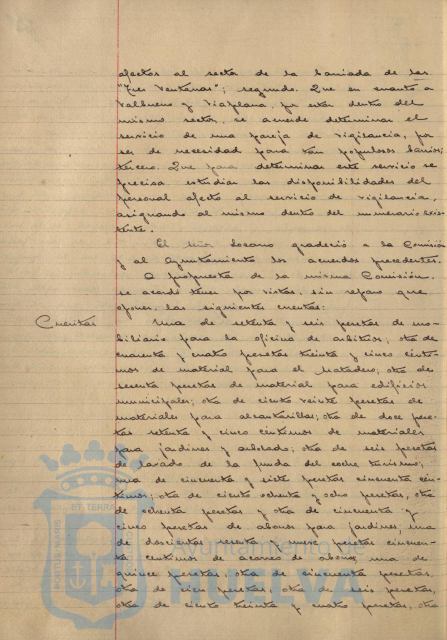 afectos al sector de la barriada de las
"Tres Ventanas"; segundo. Que en cuanto a
Valbueno y Viaplana, por estar dentro del
mismo sector, se acuerde determinar el
servicio de una pareja de vigilancia, por
ser de necesidad para tan populosos barrios;
tercero. Que para determinar este servicio se
precisa estudiar las disponibilidades del
personal afecto al servicio de vigilancia,
asignando al mismo dentro del numerario exis-
tente.
El señor Lozano gradeció a la Comisión
y al Ayuntamiento los acuerdos precedentes.
A propuesta de la misma Comisión,
se acordó tener por vistas, sin reparo que
oponer, las siguientes cuentas:
Cuentas
Una de setenta y seis pesetas de mo-
biliario para la oficina de arbitrios; otra de
cuarenta y cuatro pesetas treinta y cinco cénti-
mos de material para el Matadero; otra de
sesenta pesetas de material para edificios
municipales; otra de ciento veinte pesetas de
materiales para alcantarillas; otra de doce pese-
tas setenta y cinco céntimos de materiales
para jardines y arbolado; otra de seis pesetas
de lavado de la funda del coche turismo;
una de cincuenta y siete pesetas cincuenta cén-
timos; otra de ciento ochenta y ocho pesetas, otra
de ochenta pesetas y otra de cincuenta y
cinco pesetas de abonos para jardines; una
de doscientas sesenta y nueve pesetas cincuen-
ta céntimos de acarreo de abono; una de
quince pesetas, otra de cincuenta pesetas,
otra de cien pesetas, otra de seis pesetas,
otra de ciento treinta y cuatro pesetas, otra
Ayuntamiento de
HUELVA